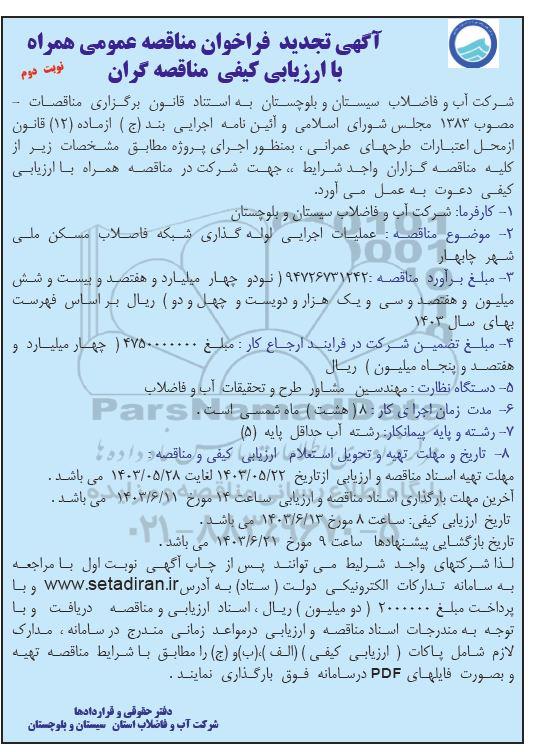 آگهی تجدید فراخوان مناقصه عمومی همراه
با ارزیابی کیفی مناقصه گران
نوبت دوم
شرکت آب و فاضلاب سیستان و بلوچستان به استناد قانون برگزاری مناقصات –
مصوب ۱۳۸۳ مجلس شورای اسلامی و آئین نامه اجرایی بند (ج ) ازماده (۱۲) قانون
ازمحل اعتبارات طرحهای عمرانی ، بمنظور اجرای پروژه مطابق مشخصات زیر از
کلیه مناقصه گزاران واجد شرایط ،، جهت شرکت در مناقصه همراه با ارزیابی
کیفی دعوت به عمل می آورد.
۱- کارفرما: شرکت آب و فاضلاب سیستان و بلوچستان
۲- موضوع مناقصه : عملیات اجرایی لوله گذاری شبکه فاضلاب مسکن ملی
شهر چابهار
۳- مبلغ برآورد مناقصه :۹۴۷۲۶۷۳۱۲۴۲ ( نودو چهار میلیارد و هفتصد و بیست و شش
میلیون و هفتصد و سی و یک هزار و دویست و چهل و دو ) ریال بر اساس فهرست
بهای سال ۱۴۰۳
۴- مبلغ تضمین شرکت در فرایند ارجاع کار : مبلغ ۴۷۵۰۰۰۰۰۰۰ ( چهار میلیارد و
هفتصد و پنجاه میلیون ) ریال
۵- دستگاه نظارت : مهندسین مشاور طرح و تحقیقات آب و فاضلاب
۶- مدت زمان اجرا ی کار : ۸ ( هشت ) ماه شمسی است .
۷- رشته و پایه پیمانکار: رشته آب حداقل پایه (۵)
۸- تاریخ و مهلت تهیه و تحویل استعلام ارزیابی کیفی و مناقصه :
مهلت تهیه اسناد مناقصه و ارزیابی ازتاریخ ۱۴۰۳/۰۵/۲۲ لغایت ۱۴۰۳/۰۵/۲۸ می باشد .
آخرین مهلت بارگذاری اسناد مناقصه و ارزیابی ساعت ۱۴ مورخ ۱۴۰۳/۶/۱۱ می باشد .
تاریخ ارزیابی کیفی: ساعت ۸ مورخ ۱۴۰۳/۶/۱۳ می باشد .
تاریخ بازگشایی پیشنهادها ساعت ۹ مورخ ۱۴۰۳/۶/۲۱ می باشد .
لذا شرکتهای واجد شرایط می توانند پس از چاپ آگهی نوبت اول با مراجعه
به سامانه تدارکات الکترونیکی دولت ( ستاد) به آدرس www.setadiran.ir و با
پرداخت مبلغ ۲۰۰۰۰۰۰ ( دو میلیون ) ریال ، اسناد ارزیابی و مناقصه دریافت و با
توجه به مندرجات اسناد مناقصه و ارزیابی درمواعد زمانی مندرج در سامانه ، مدارک
لازم شامل پاکات ( ارزیابی کیفی ) (الف )،(ب)و (ج) را مطابق با شرایط مناقصه تهیه
و بصورت فایلهای PDF درسامانه فوق بارگذاری نمایند .
دفتر حقوقی و قراردادها
شرکت آب و فاضلاب استان سیستان و بلوچستان
ParsNamadData